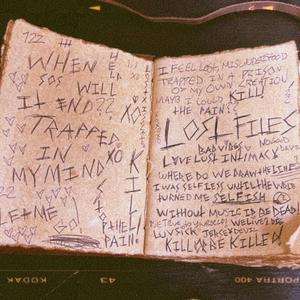 122
WHEN
SOS WILL
IT END??
TRAPPED
IN
MY MIND
XO
XO
KILL
LET ME
GO!
THE
PAIN
I FEEL LOST, MISUNDERSTOOD
TRAPPED IN A PRISON
OF MY OWN CREATION
MAYB I COULD KILL!
THE PAIN!!
LOST FILES
BAD VIBES
LOVE LUST INTIMACY
WHERE DO WE DRAW THE LINE
I WAS SELFLESS UNTIL THE WORLD
TURNED ME SELFISH
WITHOUT MUSIC ID BE DEAD!
KILL OR BE KILLED!
KODAK
43
PORTRA 400